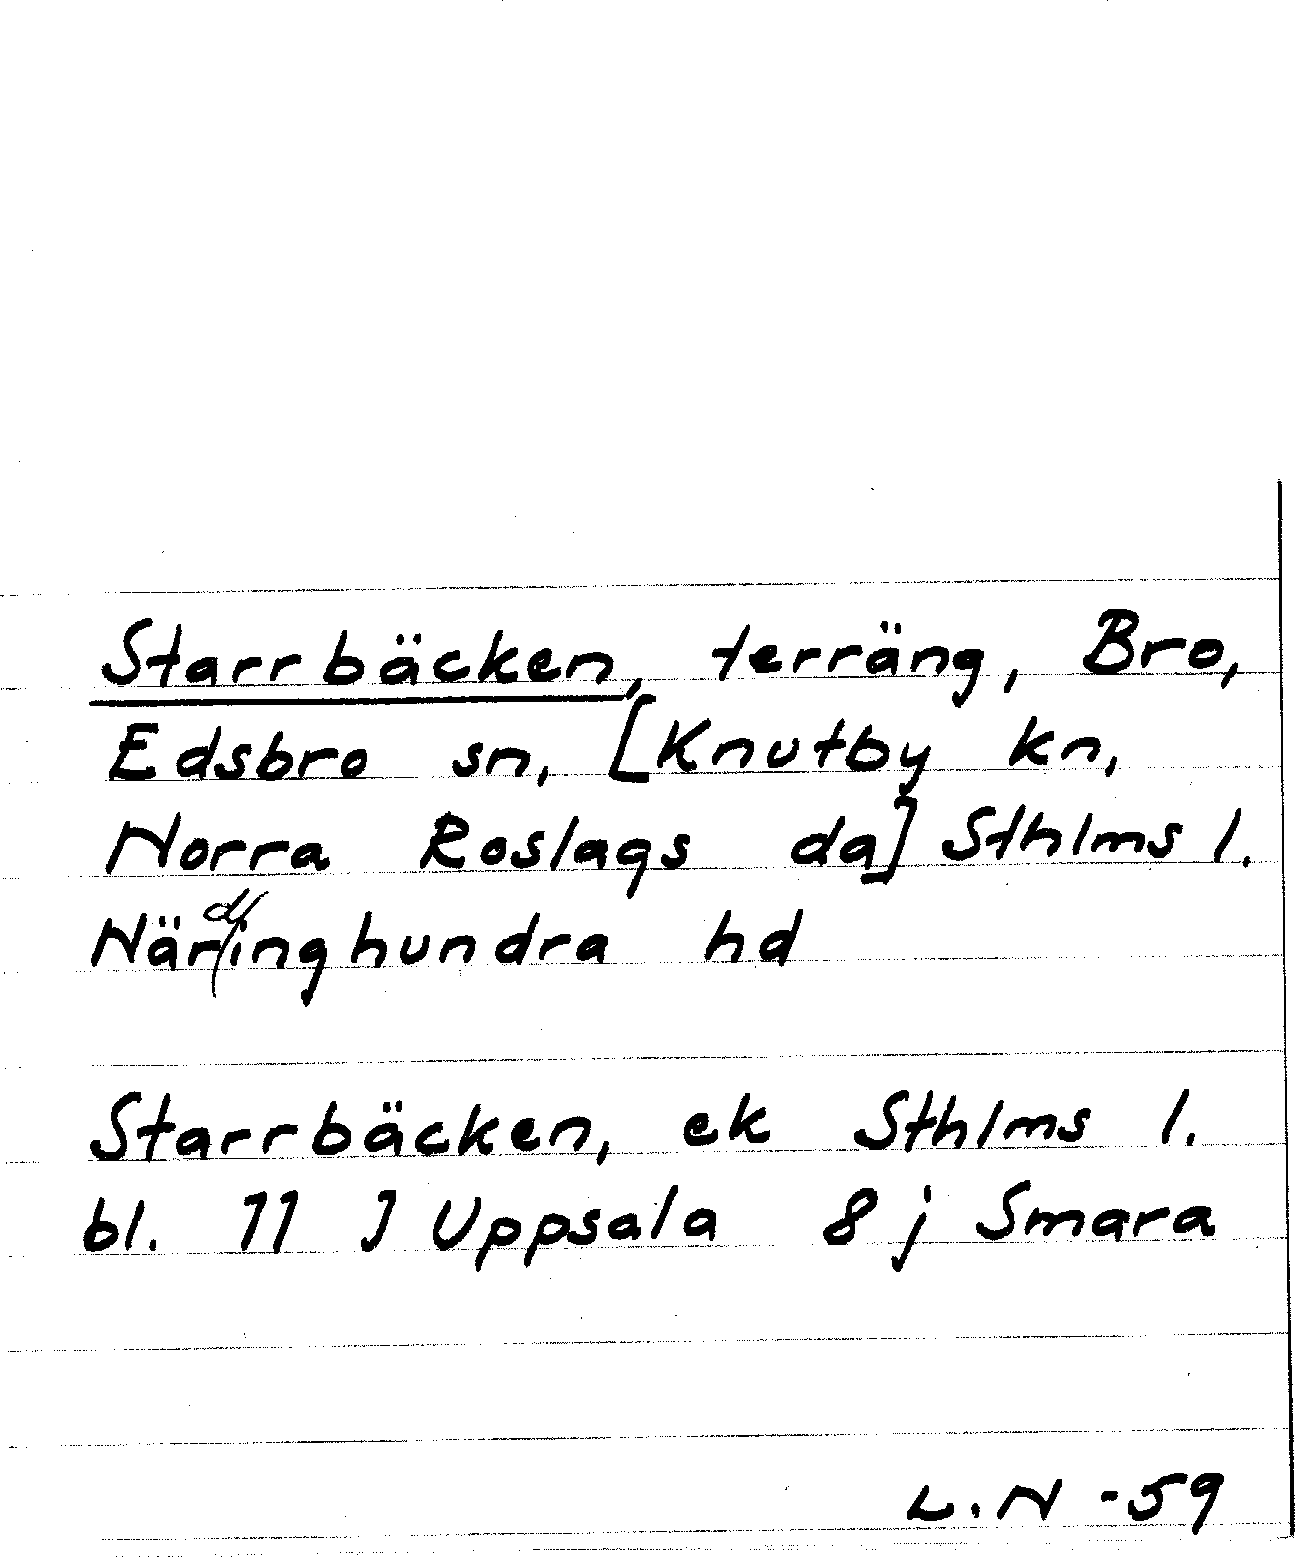 Starrbäcken, terräng, Bro,
Edsbro sn, [Knutby kn,
Norra Roslags da] Sthlms l.
Närdinghundra hd
Starrbäcken, ek Sthlms l.
bl. 11 J Uppsala 8 j Smara
L.N -59